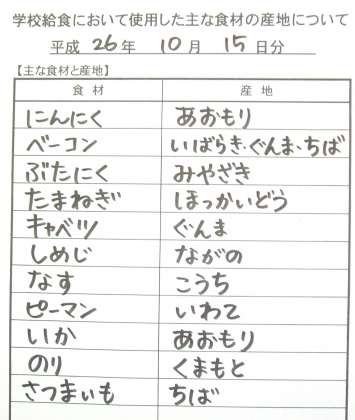 学校給食において使用した主な食材の産地について
平成 26 年 10 月 15 日分
【主な食材と産地】
食材 産地
にんにく あおもり
ベーコン いばらき・ぐんま・ちば
ぶたにく みやざき
たまねぎ ほっかいどう
キャベツ ぐんま
しめじ ながの
なす こうち
ピーマン いわて
いか あおもり
のり くまもと
さつまいも ちば